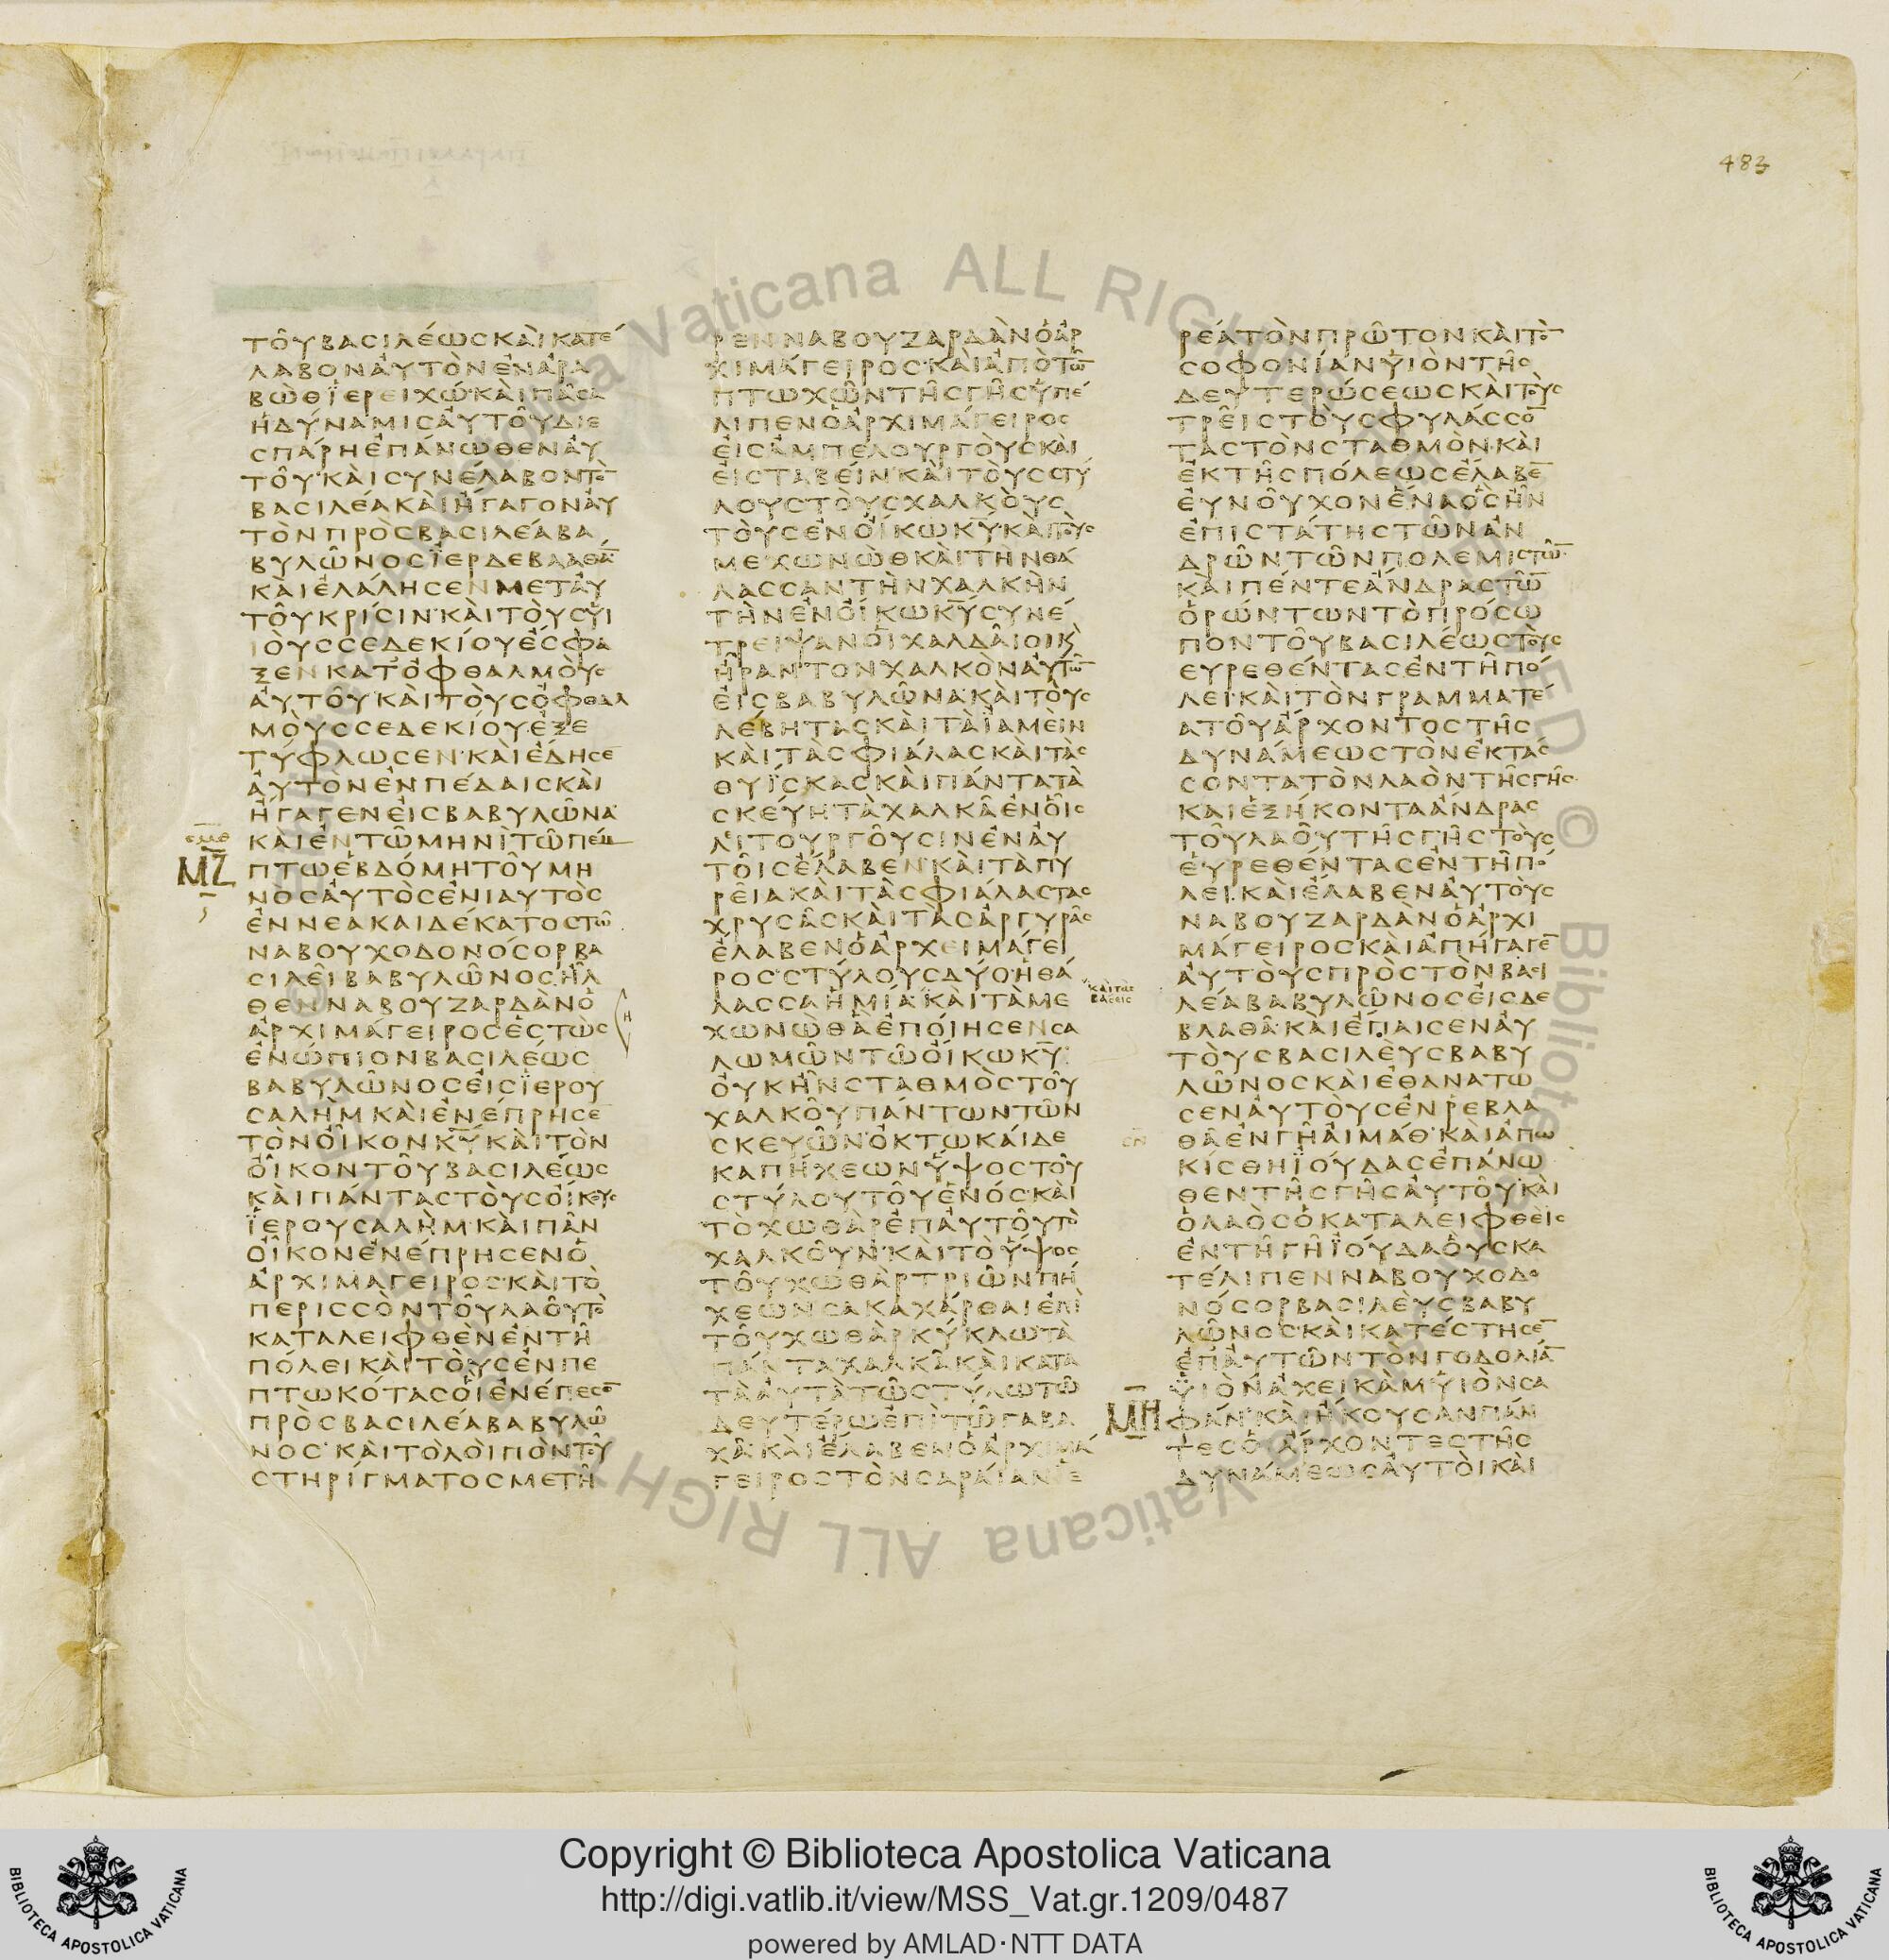 483
ΤΟΥΒΑΣΙΛΕΩΣΚΑΙΚΑΤΕ
ΛΑΒΟΝΑΥΤΟΝΕΝΑΡΑ
ΒΩΘΪΕΡΕΙΧΩ·ΚΑΙΠΑΣΑ
ΗΔΥΝΑΜΙΣΑΥΤΟΥΔΙΕ
ΣΠΑΡΗΕΠΑΝΩΘΕΝΑΥ
ΤΟΥ·ΚΑΙΣΥΝΕΛΑΒΟΝΤΟ̅
ΒΑΣΙΛΕΑΚΑΙΗΓΑΓΟΝΑΥ
ΤΟΝΠΡΟΣΒΑΣΙΛΕΑΒΑ
ΒΥΛΩΝΟΣΪΕΡΔΕΒΛΑΘΑ̅
ΚΑΙΕΛΑΛΗΣΕΝΜΕΤΑΥ
ΤΟΥΚΡΙΣΙΝ·ΚΑΙΤΟΥΣΫΙ
ΙΟΥΣΣΕΔΕΚΙΟΥΕΣΦΑ
ΞΕΝΚΑΤΟΦΘΑΛΜΟΥΣ
ΑΥΤΟΥ·ΚΑΙΤΟΥΣΟΦΘΑΛ
ΜΟΥΣΣΕΔΕΚΙΟΥ·ΕΞΕ
ΤΥΦΛΩΣΕΝ·ΚΑΙΕΔΗΣΕ̅
ΑΥΤΟΝΕΝΠΕΔΑΙΣΚΑΙ
ΗΓΑΓΕΝΕΙΣΒΑΒΥΛΩΝΑ·
ΜΖ̅
ΚΑΙΕΝΤΩΜΗΝΙΤΩΠΕΜ
ΠΤΩΕΒΔΟΜΗΤΟΥΜΗ
ΝΟΣΑΥΤΟΣΕΝΙΑΥΤΟΣ
ΕΝΝΕΑΚΑΙΔΕΚΑΤΟΣΤΩ
ΝΑΒΟΥΧΟΔΟΝΟΣΟΡΒΑ
ΣΙΛΕΙΒΑΒΥΛΩΝΟΣ·ΗΛ
ΘΕΝΝΑΒΟΥΖΑΡΔΑΝΟ
ΑΡΧΙΜΑΓΕΙΡΟΣΕΣΤΩΣ
ΕΝΩΠΙΟΝΒΑΣΙΛΕΩΣ
ΒΑΒΥΛΩΝΟΣΕΙΣΪΕΡΟΥ
ΣΑΛΗΜΚΑΙΕΝΕΠΡΗΣΕ̅
ΤΟΝΟΙΚΟΝΚ̅Υ̅ΚΑΙΤΟΝ
ΟΙΚΟΝΤΟΥΒΑΣΙΛΕΩΣ
ΚΑΙΠΑΝΤΑΣΤΟΥΣΟΙΚΟΥΣ
ΪΕΡΟΥΣΑΛΗΜ·ΚΑΙΠΑΝ
ΟΙΚΟΝΕΝΕΠΡΗΣΕΝΟ
ΑΡΧΙΜΑΓΕΙΡΟΣ·ΚΑΙΤΟ
ΠΕΡΙΣΣΟΝΤΟΥΛΑΟΥΤΟ
ΚΑΤΑΛΕΙΦΘΕΝΕΝΤΗ
ΠΟΛΕΙΚΑΙΤΟΥΣΕΝΠΕ
ΠΤΩΚΟΤΑΣΟΙΕΝΕΠΕΣΟ̅
ΠΡΟΣΒΑΣΙΛΕΑΒΑΒΥΛΩ
ΝΟΣ·ΚΑΙΤΟΛΟΙΠΟΝΤΟΥ
ΣΤΗΡΙΓΜΑΤΟΣΜΕΤΗ
ΡΕΝΝΑΒΟΥΖΑΡΔΑΝΟΑΡ
ΧΙΜΑΓΕΙΡΟΣ·ΚΑΙΑΠΟΤΩ̅
ΠΤΩΧΩΝΤΗΣΓΗΣΫΠΕ
ΛΙΠΕΝΟΑΡΧΙΜΑΓΕΙΡΟΣ
ΕΙΣΑΜΠΕΛΟΥΡΓΟΥΣΚΑΙ
ΕΙΣΤΑΒΕΙΝ·ΚΑΙΤΟΥΣΣΤΥ
ΛΟΥΣΤΟΥΣΧΑΛΚΟΥΣ
ΤΟΥΣΕΝΟΙΚΩΚ̅Υ̅·ΚΑΙΤΟΥΣ
ΜΕΧΩΝΩΘΚΑΙΤΗΝΘΑ
ΛΑΣΣΑΝΤΗΝΧΑΛΚΗΝ
ΤΗΝΕΝΟΙΚΩΚ̅Υ̅ΣΥΝΕ
ΤΡΕΙΨΑΝΟΙΧΑΛΔΑΙΟΙΚ
ΗΡΑΝΤΟΝΧΑΛΚΟΝΑΥΤΩ̅
ΕΙΣΒΑΒΥΛΩΝΑ·ΚΑΙΤΟΥΣ
ΛΕΒΗΤΑΣΚΑΙΤΑΪΑΜΕΙΝ
ΚΑΙΤΑΣΦΙΑΛΑΣΚΑΙΤΑΣ
ΘΥΪΣΚΑΣΚΑΙΠΑΝΤΑΤΑ
ΣΚΕΥΗΤΑΧΑΛΚΑΕΝΟΙΣ
ΛΙΤΟΥΡΓΟΥΣΙΝΕΝΑΥ
ΤΟΙΣΕΛΑΒΕΝ·ΚΑΙΤΑΠΥ
ΡΕΙΑΚΑΙΤΑΣΦΙΑΛΑΣΤΑΣ
ΧΡΥΣΑΣΚΑΙΤΑΣΑΡΓΥΡΑΣ
ΕΛΑΒΕΝΟΑΡΧΕΙΜΑΓΕΙ
ΡΟΣ·ΣΤΥΛΟΥΣΔΥΟ·ΗΘΑ
ΛΑΣΣΑΗΜΙΑ·ΚΑΙΤΑΜΕ
ΚΑΙΤΑΣ
ΒΑΣΕΙΣ
ΧΩΝΩΘΑΕΠΟΙΗΣΕΝΣΑ
ΛΩΜΩΝΤΩΟΙΚΩΚ̅Υ̅·
ΟΥΚΗΝΣΤΑΘΜΟΣΤΟΥ
ΧΑΛΚΟΥΠΑΝΤΩΝΤΩΝ
ΣΚΕΥΩΝ·ΟΚΤΩΚΑΙΔΕ
ΚΑΠΗΧΕΩΝΫΨΟΣΤΟΥ
ΣΤΥΛΟΥΤΟΥΕΝΟΣ·ΚΑΙ
ΤΟΧΩΘΑΡΕΠΑΥΤΟΥΤΟ
ΧΑΛΚΟΥΝ·ΚΑΙΤΟΫΨΟΣ
ΤΟΥΧΩΘΑΡΤΡΙΩΝΠΗ
ΧΕΩΝΣΑΚΑΧΑΡΘΑΙΕΠΙ
ΤΟΥΧΩΘΑΡΚΥΚΛΩΤΑ
ΠΑΝΤΑΧΑΛΚΑΚΑΙΚΑΤΑ
ΤΑΑΥΤΑΤΩΣΤΥΛΩΤΩ
ΔΕΥΤΕΡΩΕΠΙΤΩΓΑΒΑ
ΧΑ·ΚΑΙΕΛΑΒΕΝΟΑΡΧΙΜΑ
ΓΕΙΡΟΣΤΟΝΣΑΡΑΙΑΝΙΕ
ΡΕΑΤΟΝΠΡΩΤΟΝΚΑΙΤΟ̅
ΣΟΦΟΝΙΑΝΫΙΟΝΤΗΣ
ΔΕΥΤΕΡΩΣΕΩΣΚΑΙΤΟΥΣ
ΤΡΕΙΣΤΟΥΣΦΥΛΑΣΣΟ̅
ΤΑΣΤΟΝΣΤΑΘΜΟΝ·ΚΑΙ
ΕΚΤΗΣΠΟΛΕΩΣΕΛΑΒΕ̅
ΕΥΝΟΥΧΟΝΕΝΑΟΣΗΝ
ΕΠΙΣΤΑΤΗΣΤΩΝΑΝ
ΔΡΩΝΤΩΝΠΟΛΕΜΙΣΤΩ̅·
ΚΑΙΠΕΝΤΕΑΝΔΡΑΣΤΩ̅
ΟΡΩΝΤΩΝΤΟΠΡΟΣΩ
ΠΟΝΤΟΥΒΑΣΙΛΕΩΣΤΟΥΣ
ΕΥΡΕΘΕΝΤΑΣΕΝΤΗΠΟ
ΛΕΙ·ΚΑΙΤΟΝΓΡΑΜΜΑΤΕ
ΑΤΟΥΑΡΧΟΝΤΟΣΤΗΣ
ΔΥΝΑΜΕΩΣΤΟΝΕΚΤΑΣ
ΣΟΝΤΑΤΟΝΛΑΟΝΤΗΣΓΗΣ·
ΚΑΙΕΞΗΚΟΝΤΑΑΝΔΡΑΣ
ΤΟΥΛΑΟΥΤΗΣΓΗΣΤΟΥΣ
ΕΥΡΕΘΕΝΤΑΣΕΝΤΗΠΟ
ΛΕΙ·ΚΑΙΕΛΑΒΕΝΑΥΤΟΥΣ
ΝΑΒΟΥΖΑΡΔΑΝΟΑΡΧΙ
ΜΑΓΕΙΡΟΣΚΑΙΑΠΗΓΑΓΕ̅
ΑΥΤΟΥΣΠΡΟΣΤΟΝΒΑΣΙ
ΛΕΑΒΑΒΥΛΩΝΟΣΕΙΣΔΕ
ΒΛΑΘΑ·ΚΑΙΕΠΑΙΣΕΝΑΥ
ΤΟΥΣΒΑΣΙΛΕΥΣΒΑΒΥ
ΛΩΝΟΣΚΑΙΕΘΑΝΑΤΩ
ΣΕΝΑΥΤΟΥΣΕΝΡΕΒΛΑ
ΘΑΕΝΓΗΑΙΜΑΘ·ΚΑΙΑΠΩ
ΚΙΣΘΗΪΟΥΔΑΣΕΠΑΝΩ
ΘΕΝΤΗΣΓΗΣΑΥΤΟΥ·ΚΑΙ
ΟΛΑΟΣΟΚΑΤΑΛΕΙΦΘΕΙΣ
ΕΝΤΗΓΗΪΟΥΔΑΟΥΣΚΑ
ΤΕΛΙΠΕΝΝΑΒΟΥΧΟΔΟ
ΝΟΣΟΡΒΑΣΙΛΕΥΣΒΑΒΥ
ΛΩΝΟΣ·ΚΑΙΚΑΤΕΣΤΗΣΕ̅
ΕΠΑΥΤΩΝΤΟΝΓΟΔΟΛΙΑ̅
ΫΙΟΝΑΧΕΙΚΑΜΫΙΟΝΣΑ
ΜΗ̅
ΦΑΝ·ΚΑΙΗΚΟΥΣΑΝΠΑΝ
ΤΕΣΟΙΑΡΧΟΝΤΕΣΤΗΣ
ΔΥΝΑΜΕΩΣΑΥΤΟΙΚΑΙ
Copyright © Biblioteca Apostolica Vaticana
http://digi.vatlib.it/view/MSS_Vat.gr.1209/0487
powered by AMLAD·NTT DATA
BIBLIOTECA APOSTOLICA VATICANA
BIBLIOTECA APOSTOLICA VATICANA